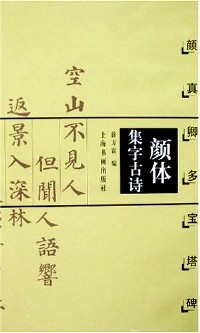 颜真卿多宝塔碑
颜体
集字古诗
上海书画出版社
空山不見人
但聞人語響
返景入深林